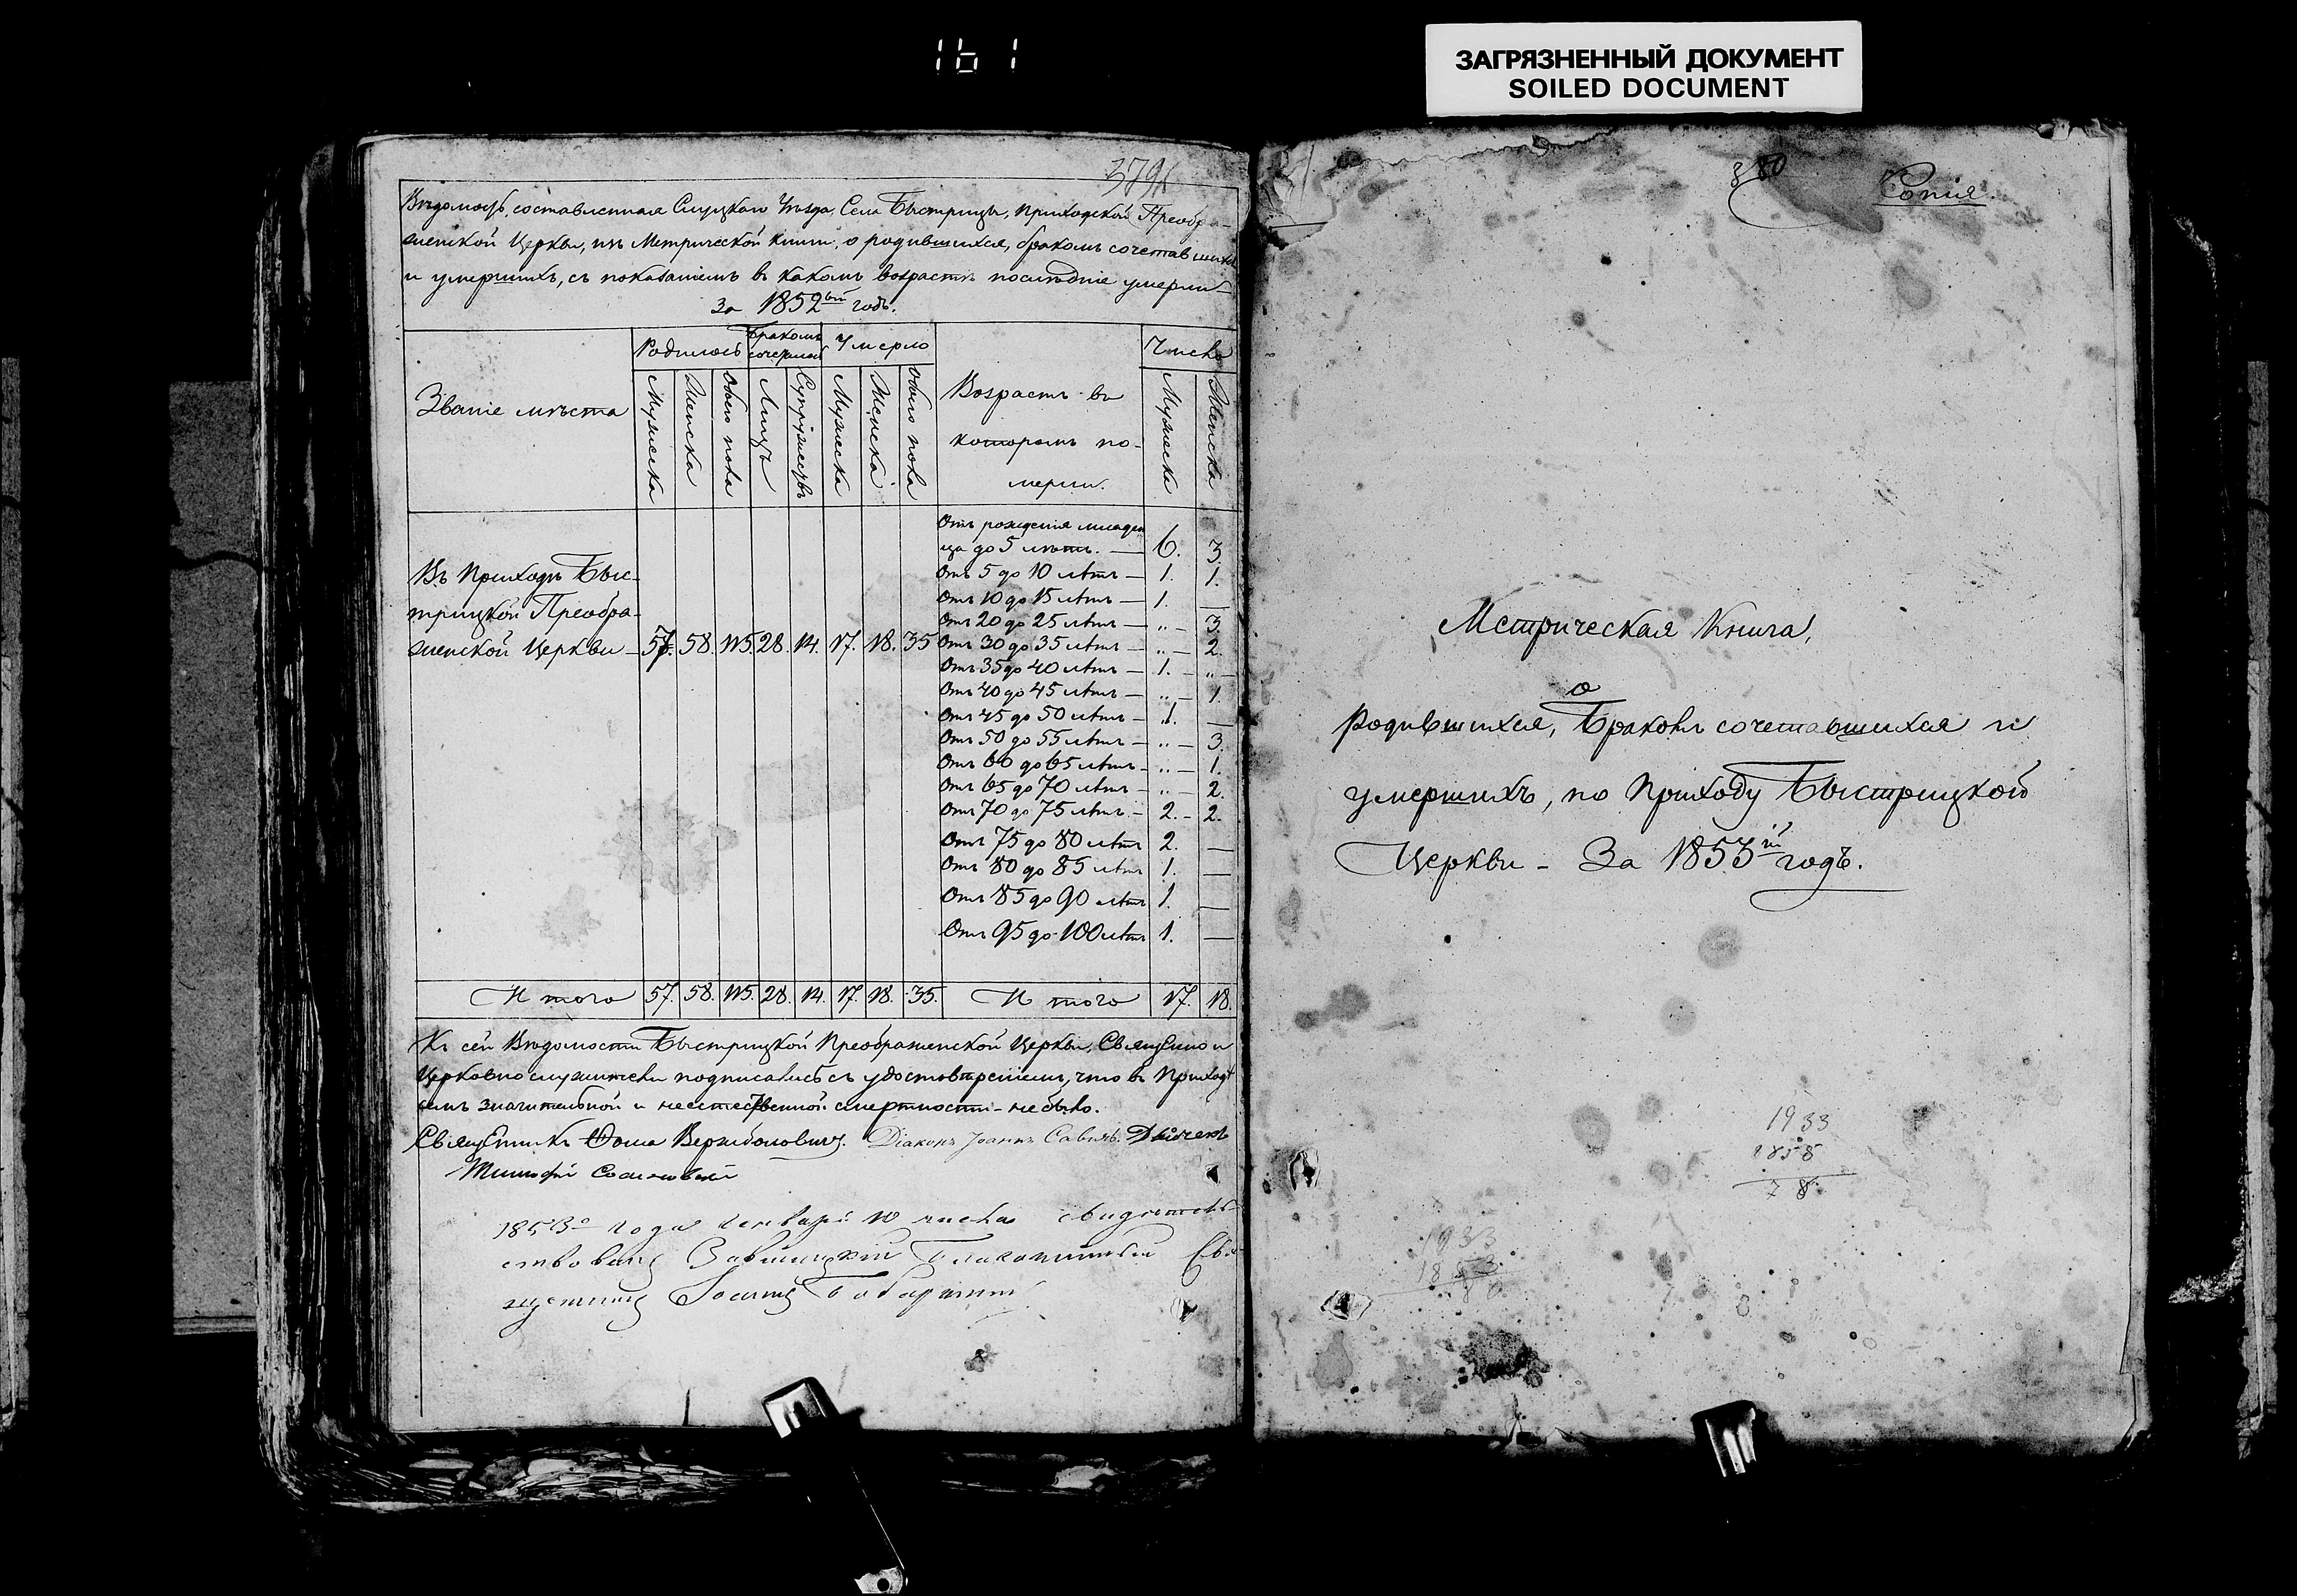 161
ЗАГРЯЗНЕННЫЙ ДОКУМЕНТ
SOILED DOCUMENT
379
Вѣдомость, составленная Слуцкаго Уѣзда, Села Быстрицы, Приходской Преобра-
женской Церкви, изъ Метрической книги, о родившихся, бракомъ сочетавшихся
и умершихъ, съ показаніемъ въ какомъ возрастѣ послѣдніе умерли
За 1852ый годъ.
Званіе мѣста
Родилось
Бракомъ
Умерло
Мужеска
Женска
Обоего пола
Лицъ
Супружествъ
Мужеска
Женска
Обоего пола
Возрастъ въ
которомъ по-
мерли.
Число
Мужеска
Женска
Въ Приходѣ Быс-
трицкой Преобра-
женской Церкви — 57. 58. 115. 28. 14. 17. 18. 35
Отъ рожденія младен
ца до 5 лѣтъ. — 6. 3.
Отъ 5 до 10 лѣтъ — 1. 1.
Отъ 10 до 15 лѣтъ — 1. —
Отъ 20 до 25 лѣтъ — „ — 3.
Отъ 30 до 35 лѣтъ — „ — 2.
Отъ 35 до 40 лѣтъ — 1. — „ —
Отъ 40 до 45 лѣтъ — „ — 1.
Отъ 45 до 50 лѣтъ — 1. —
Отъ 50 до 55 лѣтъ — „ — 3.
Отъ 60 до 65 лѣтъ — „ — 1.
Отъ 65 до 70 лѣтъ — „ — 2.
Отъ 70 до 75 лѣтъ — 2. — 2.
Отъ 75 до 80 лѣтъ 2. —
Отъ 80 до 85 лѣтъ 1. —
Отъ 85 до 90 лѣтъ 1. —
Отъ 95 до 100 лѣтъ 1. —
И того 57. 58. 115. 28. 14. 17. 18. 35. И того 17. 18.
Къ сей Вѣдомости Быстрицкой Преображенской Церкви, Священно и
Церковнослужители подписались съ удостовѣреніемъ, что въ Приходѣ
семъ значительной и неестественной смертности — небыло.
Священникъ Фома Вержболовичъ. Діаконъ Іоаннъ Савичъ. Дьячекъ
Тимофей
1853го года Генваря 10 числа свидѣтель-
ствовалъ Благочинный Свя-
щенникъ Іоаннъ
380
Копія.
Метрическая Книга,
о
родившихся, Бракомъ сочетавшихся и
умершихъ, по Приходу Быстрицкой
Церкви — За 1853й годъ.
1933
1858
78
1933
1853
80